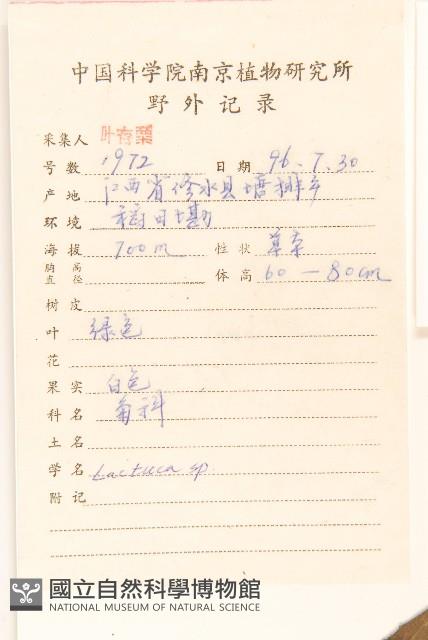 中国科学院南京植物研究所
野外记录
采集人 叶存粟
号数 1972 日期 96.7.30
产地 江西省修水县塘排乡
环境 稻田埂
海拔 700m 性状 草本
胸高直径 体高 60—80cm
树皮
叶 绿色
花
果实 白色
科名 菊科
土名
学名 Lactuca sp.
附记
國立自然科學博物館
NATIONAL MUSEUM OF NATURAL SCIENCE